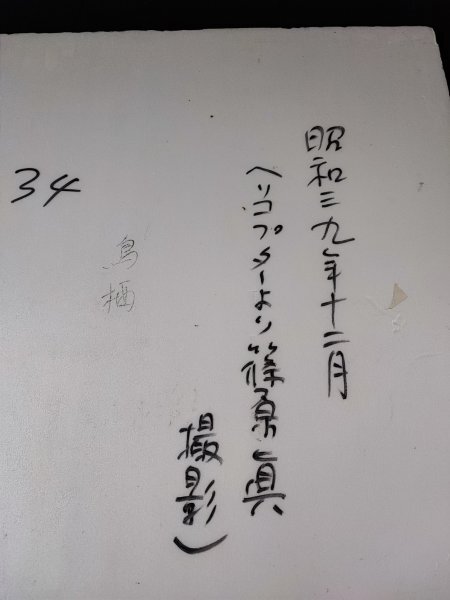 昭和三九年十二月
(ヘリコプターより篠原眞
撮影)
鳥栖
34